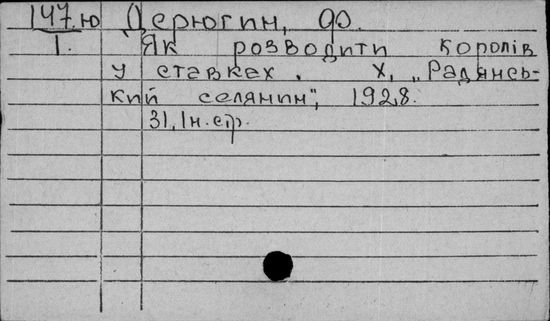 147.ю Дерюгин, Ф.
1. Як розводити королів
у ставках. Х, „Радянсь-
кий селянин", 1928.
31, 1н.стр.